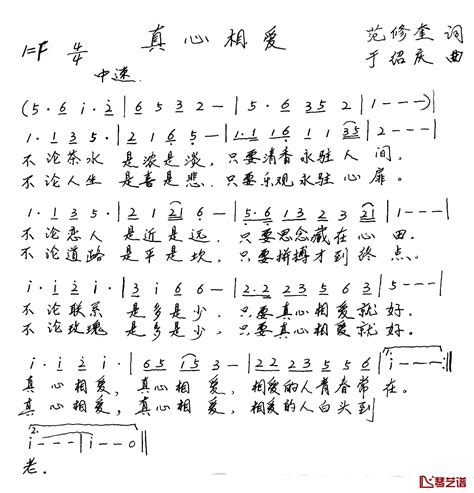 真心相爱
范修奎 词
1=F 4/4
于绍庆 曲
中速.
(5·6 i·ż | 6 5 3 2 - | 5·6 3 5 2 | 1 - - -)|
1·1 3 5· | 2 1 6 5 - | 1·1 1 6 1 1 3 5 | 2 - - - |
不论茶水 是浓是淡, 只要清香永驻人 间,
不论人生 是喜是悲. 只要乐观永驻心 扉.
1·1 3 5· | 2 1 2 1 6 - | 5·6 1 3 2 3 2 1 | 1 - - - |
不论恋人 是近是远. 只要思念藏在心 田.
不论道路 是平是坎, 只要拼搏才到终 点.
i·i ż i· | 3 i 6 6 - | 2·2 2 3 5 3 6 | 5 - - - |
不论联系 是多是少. 只要真心相爱就好.
不论玫瑰 是多是少, 只要真心相爱就好.
i·i ż i· | 6 5 1 5 3 - | 2 2 2 3 5 5 6 | i - - - :||
真心相爱, 真心相爱, 相爱的人青春常在.
真心相爱, 真心相爱, 相爱的人白头到
2.
i - - - | i - - 0 ||
老.
琴艺谱